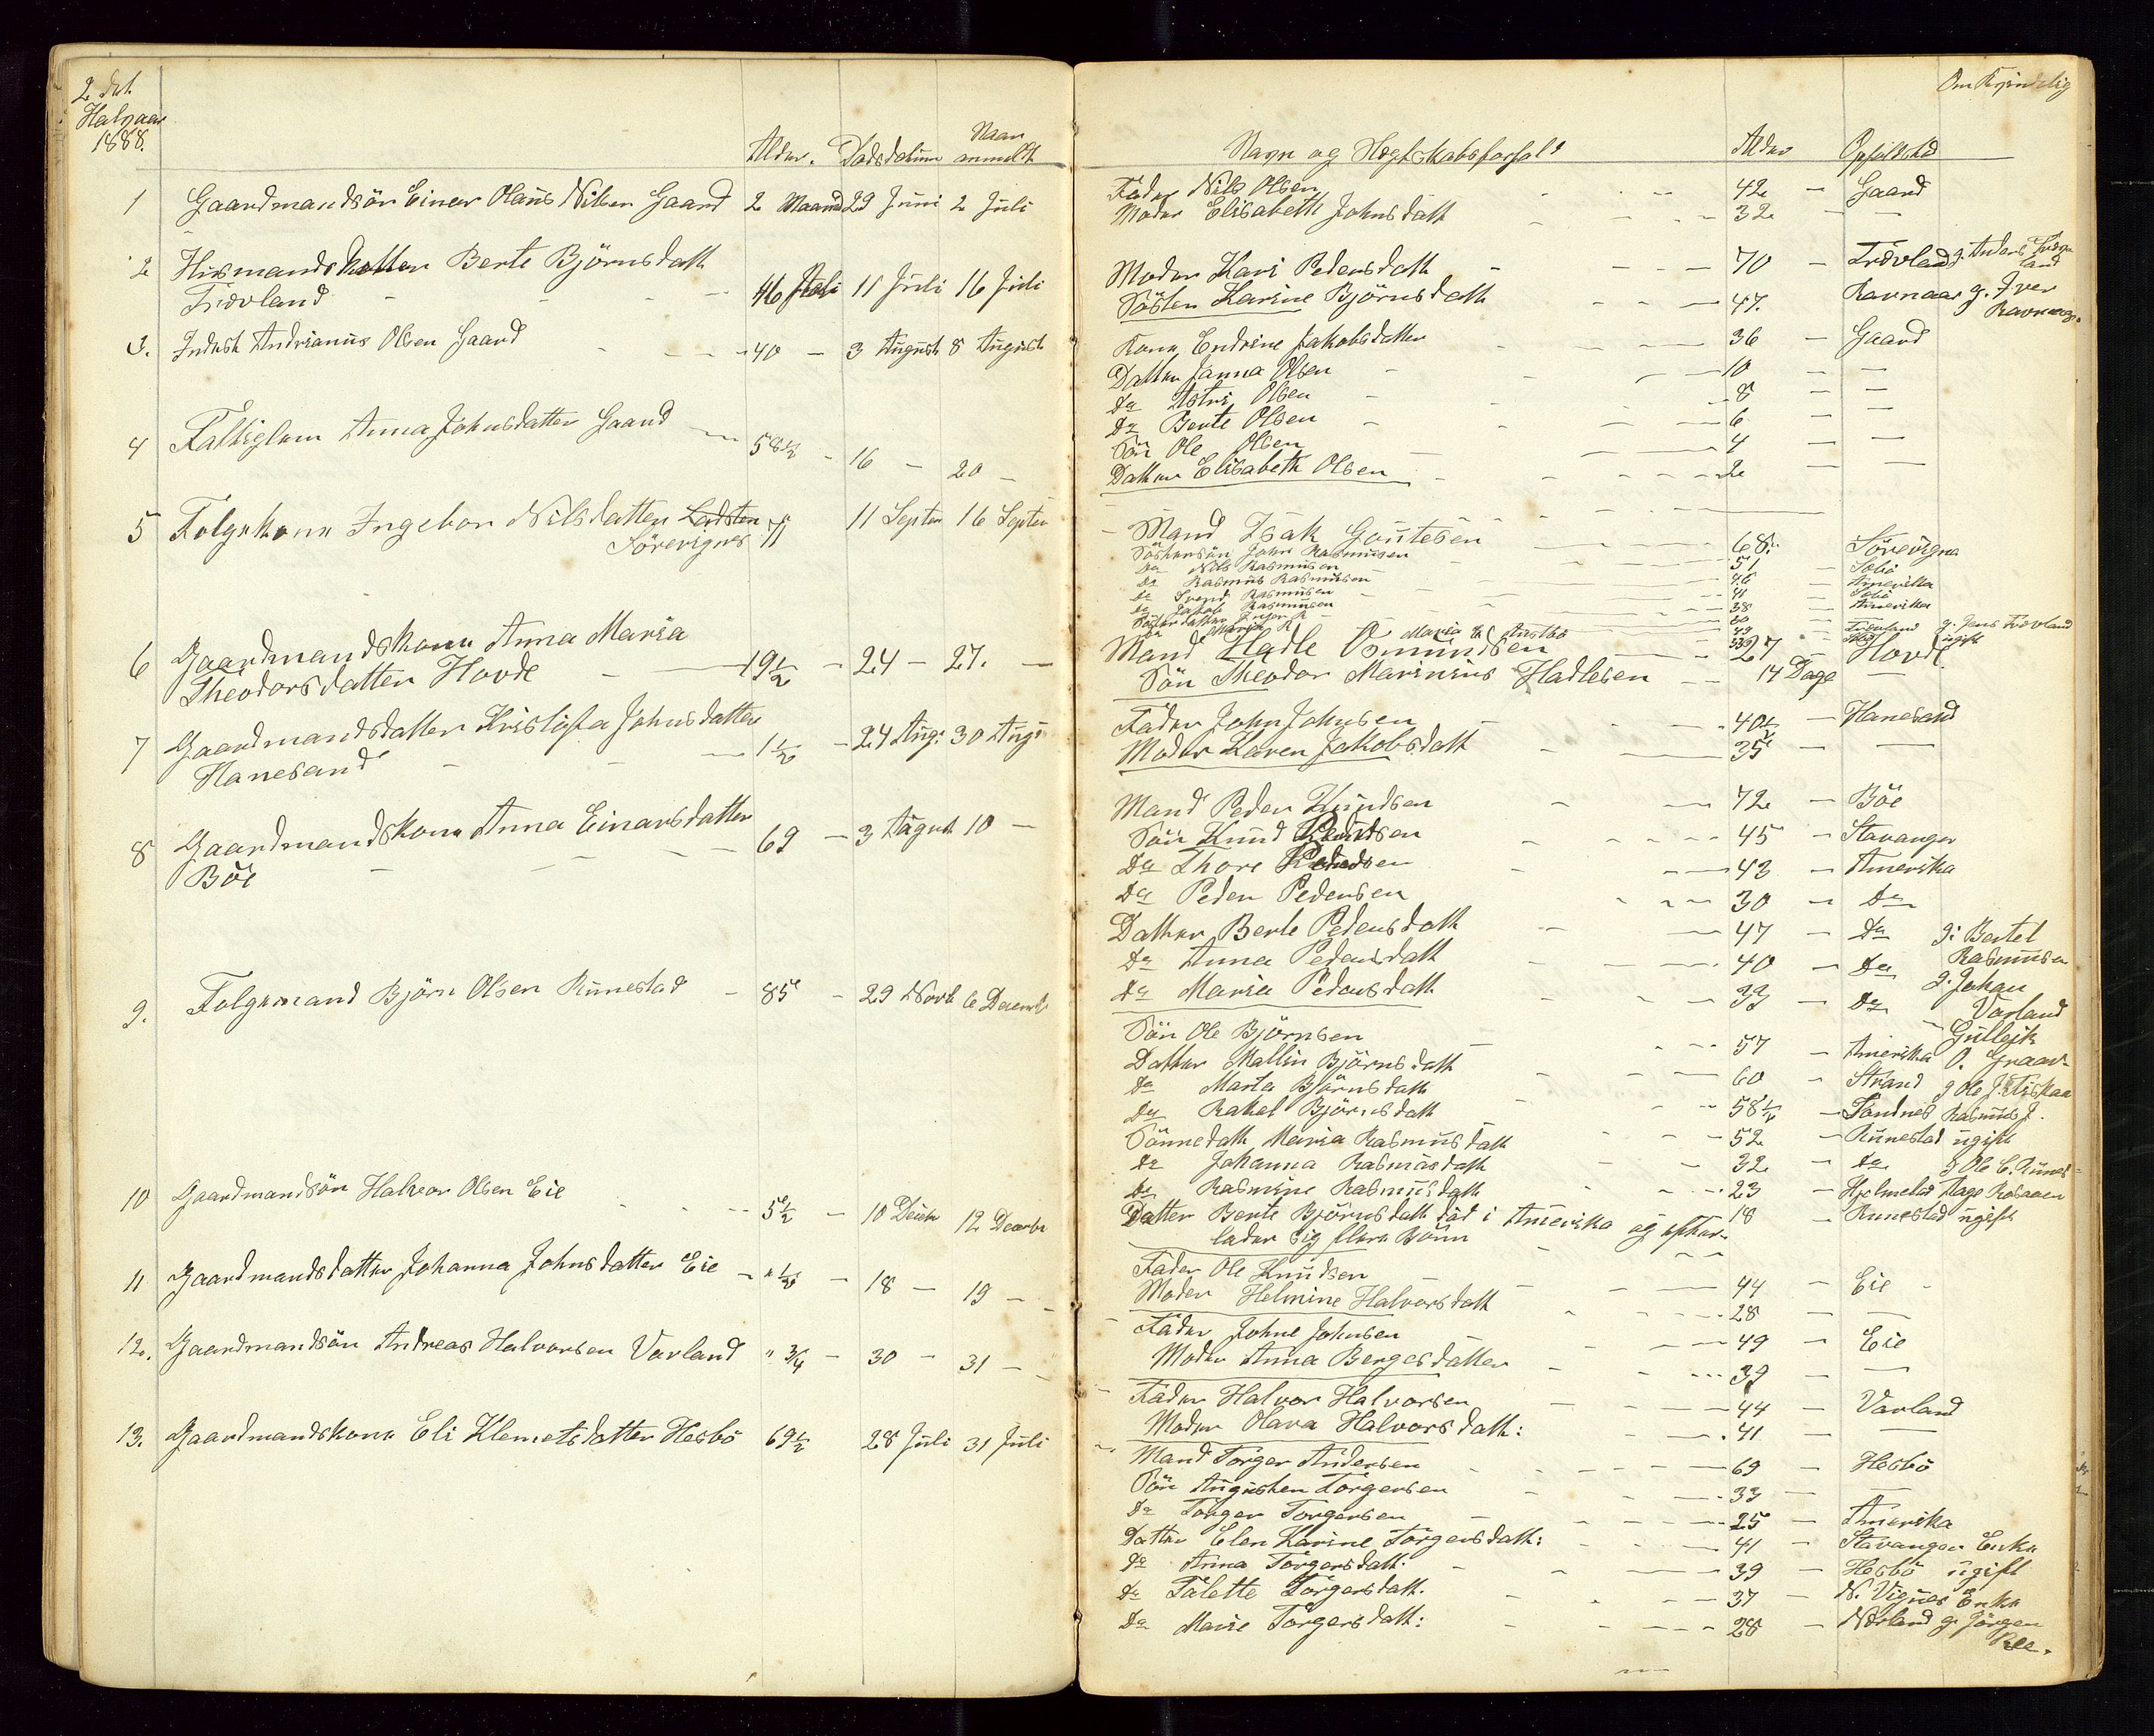 2 det
Halvaar
1888.
Alder. Dødsdatum Naar
anmeldt
1 Gaardmandsön Einer Olaus Nilsen Gaard 2 Maaned 29 Juni 2 Juli
2 Husmandsdatter Berte Björnsdatt
Tidvland 46 11 Juli 16 Juli
3. Inderst Andrianus Olsen Gaard 40 — 3 August 8 August
4 Fattiglem Anna Johnsdatter Gaard 58½ — 16 — 20 —
5 Folgekone Ingebor Nilsdatter
Sörevignes 71 11 Septer 16 Septer
6 Gaardmandskone Anna Maria
Theodorsdatter Hovde 19½ — 24 — 27. —
7 Gaardmandsdatter Kristofa Johnsdatter
Hanesand 1½ — 24 Aug: 30 Aug:
8 Gaardmandskone Anna Einarsdatter
Böe 69 — 3 August 10 —
9. Folgemand Björn Olsen Runestad — 85 — 29 Novb 6 Decemb
10 Gaardmandsön Halvor Olsen Eie 5½ — 10 Decbr 12 Decembr
11 Gaardmandsdatter Johanna Johnsdatter Eie — " ½ — 18 — 19 —
12. Gaardmandsön Andreas Halvorsen Varland " ¾ — 30 — 31 —
13. Gaardmandskone Eli Klemetsdatter Hesbö 69½ 28 Juli 31 Juli
Navn og Slegtskabsforhold Alder Opholdsted
Fader Nils Olsen 42 — Gaard
Moder Elisabeth Johnsdatt 32 — —
Moder Kari Pedersdatt 70 — Tidvland g. Anders
land
Söster Karine Björnsdatt 47. Ravnaas g. Iver
Ravnaas.
Kone Endrine Jakobsdatter 36 — Gaard
Datter Janna Olsen 10 — —
Do Astri Olsen 8 — —
Do Berte Olsen 6 — —
Sön Ole Olsen 4 — —
Datter Elisabeth Olsen 2 — —
Mand Isak Goutesen 68: Sörevigna
Söstersön John Rasmusen 51 — Sebö
Do Nils Rasmusen 46 — Amerika
Do Rasmus Rasmusen 41 — Sebö
Do Svend Rasmusen 38 — Amerika
Do Jakob Rasmusen
Tidvland g. Jens Tidvland
Do Maria R ugift
Mand Hadle Osmundsen 27 Hovde
Sön Theodor Marinius Hadlesen 14 Dage —
Fader John Johnsen 40½ — Hanesand
Moder Karen Jakobsdatt 35 — —
Mand Peder Knudsen 72 — Böe
Sön Knud 45 — Stavanger
Do Thore 43 — Amerika
Do Peder Pedersen 30 — Do
Datter Berte Pedersdatt 47 — Do g: Bertel
Rasmusen
Do Anna Pedersdatt 40 — Do g. Johan
Varland
Do Maria Pedersdatt 33 — Do — Gulleik
Sön Ole Björnsen 57 — Amerika
Datter Mallin Björnsdatt 60 — Strand g Ole J.
Do Marta Björnsdatt 58½ — Sandnes Rasmus J.
Do Rakel Björnsdatt 52 — Runestad ugift
Sönnedatt Maria Rasmusdatt 32 — Do g Ole E. Runes=
Do Johanna Rasmusdatt 23 — Hjelmeland
Do Rasmine Rasmusdatt 18 — Runestad ugift
Datter Berte Björnsdatt död i Amerika og efter-
lader sig flere Börn
Fader Ole Knudsen 44 — Eie
Moder Helmine Halvorsdatt 28 — —
Fader Johne Johnsen 49 — Eie
Moder Anna Bergesdatter 39 — —
Fader Halvor Halvorsen 44 — Varland
Moder Olava Halvorsdatt: 41 — —
Mand Torger Andersen 69 — Hesbö
Sön Augusten Torgersen 33 — —
Do Torger Torgersen 25 — Amerika
Datter Elen Karine Torgersdatt: 41 — Stavanger Enke
Do Anna Torgersdatt. 39 — Hesbö ugift
Do Talette Torgersdatt. 37 — N. Vignes Enke
Do Marie Torgersdatt: 28 — g. Jörgen
Ree.